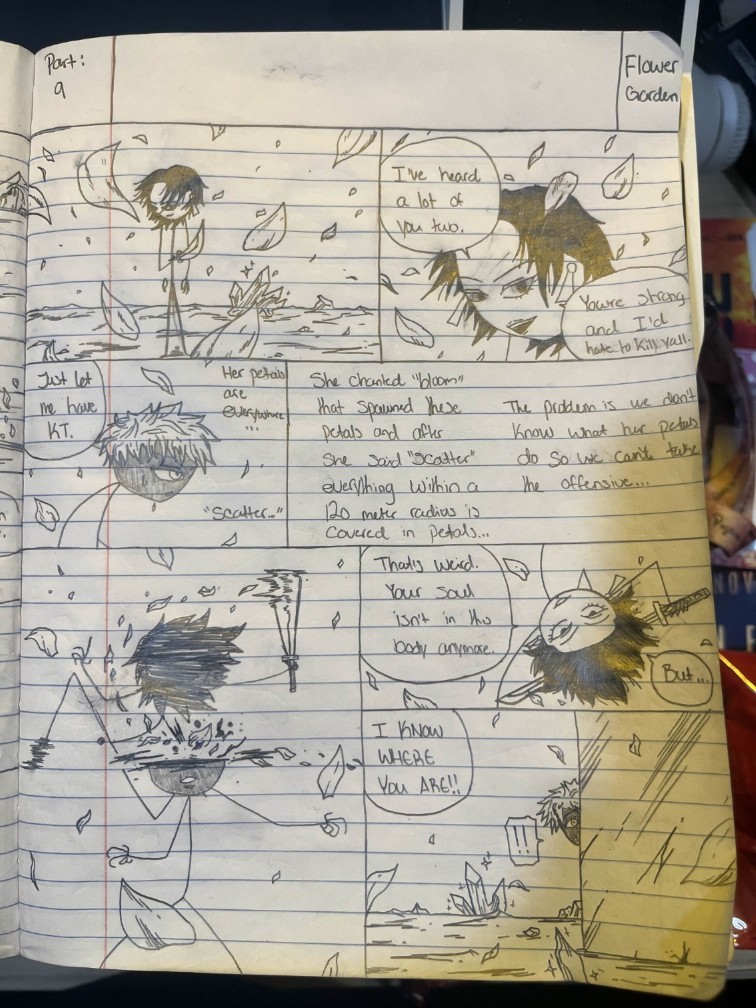 Part:
9
Flower
Garden
I've heard
a lot of
you two.
You're strong
and I'd
hate to kill yall.
Just let
me have
KT.
Her petals
are
everywhere
...
"Scatter..."
She chanted "bloom"
that spawned these
petals and after
She said "Scatter"
everything within a
120 meter radius is
covered in petals...
The problem is we don't
know what her petals
do so we can't take
the offensive...
That's weird.
Your soul
isn't in this
body anymore.
But...
I KNOW
WHERE
YOU ARE!!
!!!